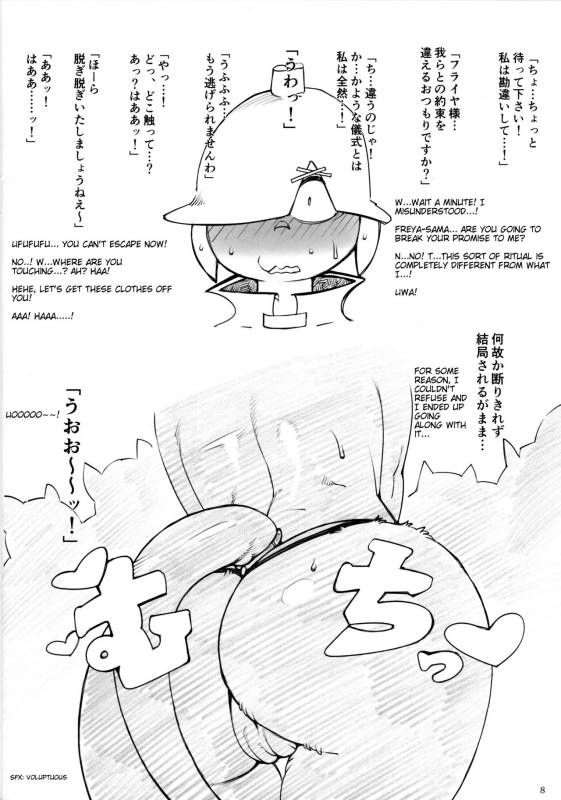 「ちょ…ちょっと
待って下さい！
私は勘違いして…！」
「フライヤ様…
我らとの約束を
違えるおつもりですか？」
「ち…違うのじゃ！
か…かような儀式とは
私は全然…！」
「うわっ！」
「うふふふ…
もう逃げられませんわ」
「やっ…！
どっ、どこ触って…？
あっ？はああッ！」
「ほーら
脱ぎ脱ぎいたしましょうねえ〜」
「ああッ！
はああ……ッ！」
W...WAIT A MINUTE! I
MISUNDERSTOOD...!
FREYA-SAMA... ARE YOU GOING TO
BREAK YOUR PROMISE TO ME?
N...NO! T...THIS SORT OF RITUAL IS
COMPLETELY DIFFERENT FROM WHAT
I...!
UWA!
UFUFUFU... YOU CAN'T ESCAPE NOW!
NO..! W...WHERE ARE YOU
TOUCHING...? AH? HAA!
HEHE, LET'S GET THESE CLOTHES OFF
YOU!
AAA! HAAA.....!
何故か断りきれず
結局されるがまま…
FOR SOME
REASON, I
COULDN'T
REFUSE AND
I ENDED UP
GOING
ALONG WITH
IT...
「うおぉ〜〜ッ！」
UOOOOO~~!
むちっ
SFX: VOLUPTUOUS
8